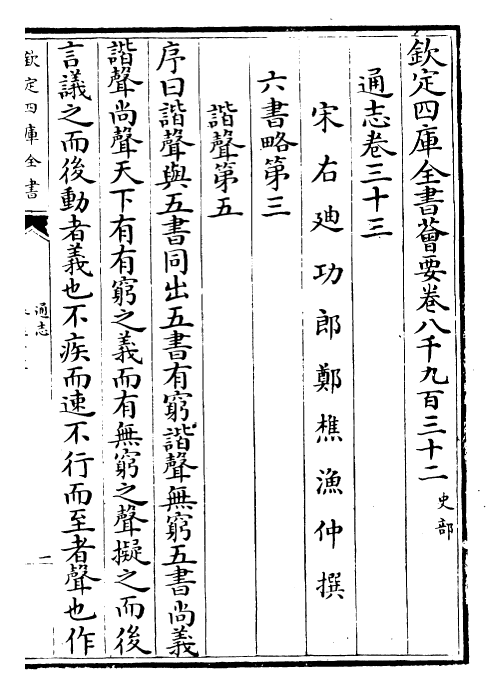 欽定四庫全書薈要卷八千九百三十二 史部
通志卷三十三
宋右廸功郎鄭樵漁仲撰
六書略第三
諧聲第五
序曰諧聲與五書同出五書有窮諧聲無窮五書尚義
諧聲尚聲天下有有窮之義而有無窮之聲擬之而後
言議之而後動者義也不疾而速不行而至者聲也作
欽定四庫全書
通志
一